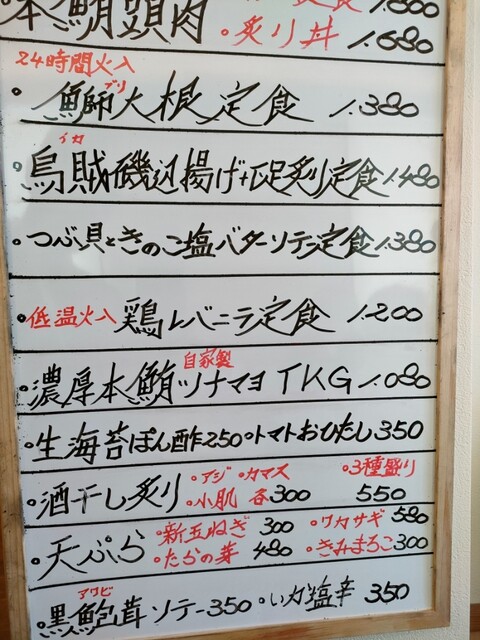 1.800
本鮪頭肉 ・炙り丼 1.680
24時間火入
ブリ
・鰤大根定食 1.380
イカ
・烏賊磯辺揚げ+足炙り定食 1.480
・つぶ貝ときのこ塩バターソテー定食 1.380
・低温火入 鶏レバニラ定食 1.200
自家製
・濃厚本鮪ツナマヨTKG 1.080
・生海苔ぽん酢250 ・トマトおひたし350
・アジ ・カマス ・3種盛り
・酒干し炙り ・小肌 各300 550
・新玉ねぎ 300 ・ワカサギ 580
・天ぷら ・たらの芽 480 ・きみまろこ 300
アワビ
・黒鮑茸ソテー350 ・いか塩辛 350